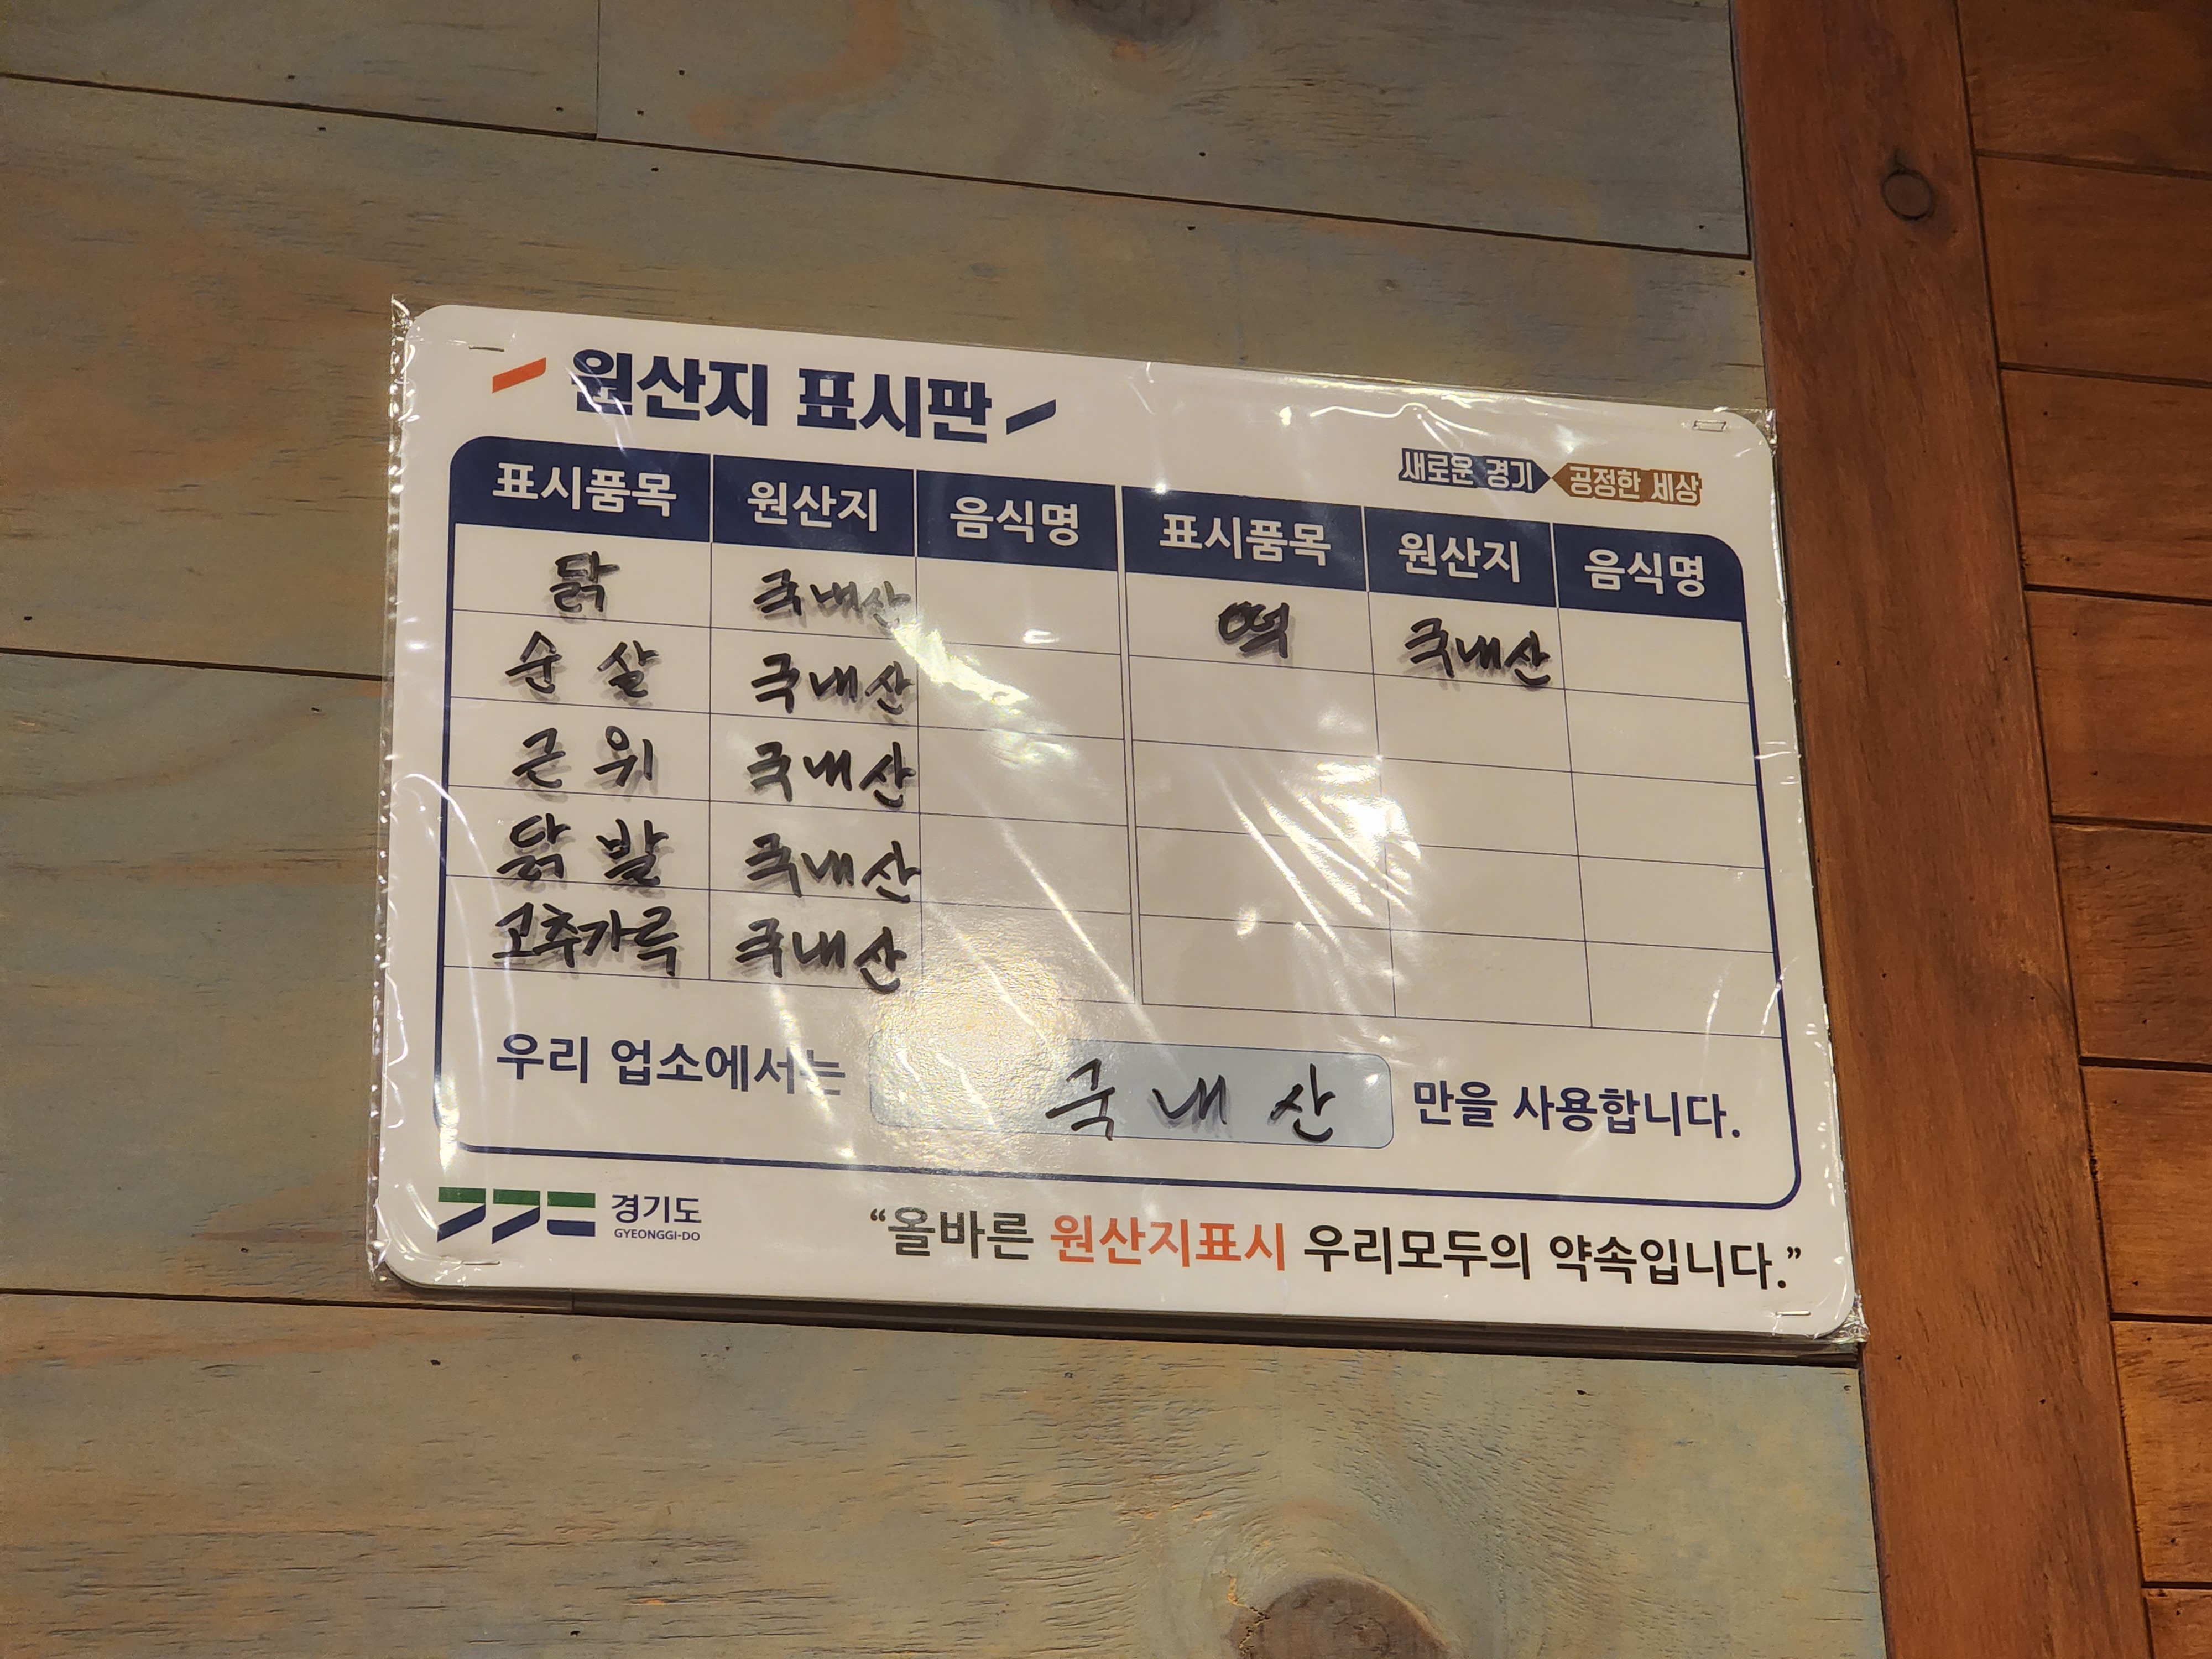 원산지 표시판
새로운 경기 공정한 세상
표시품목 원산지 음식명 표시품목 원산지 음식명
닭 국내산 떡 국내산
순살 국내산
근위 국내산
닭발 국내산
고추가루 국내산
우리 업소에서는 국내산 만을 사용합니다.
경기도
GYEONGGI-DO
“올바른 원산지표시 우리모두의 약속입니다.”